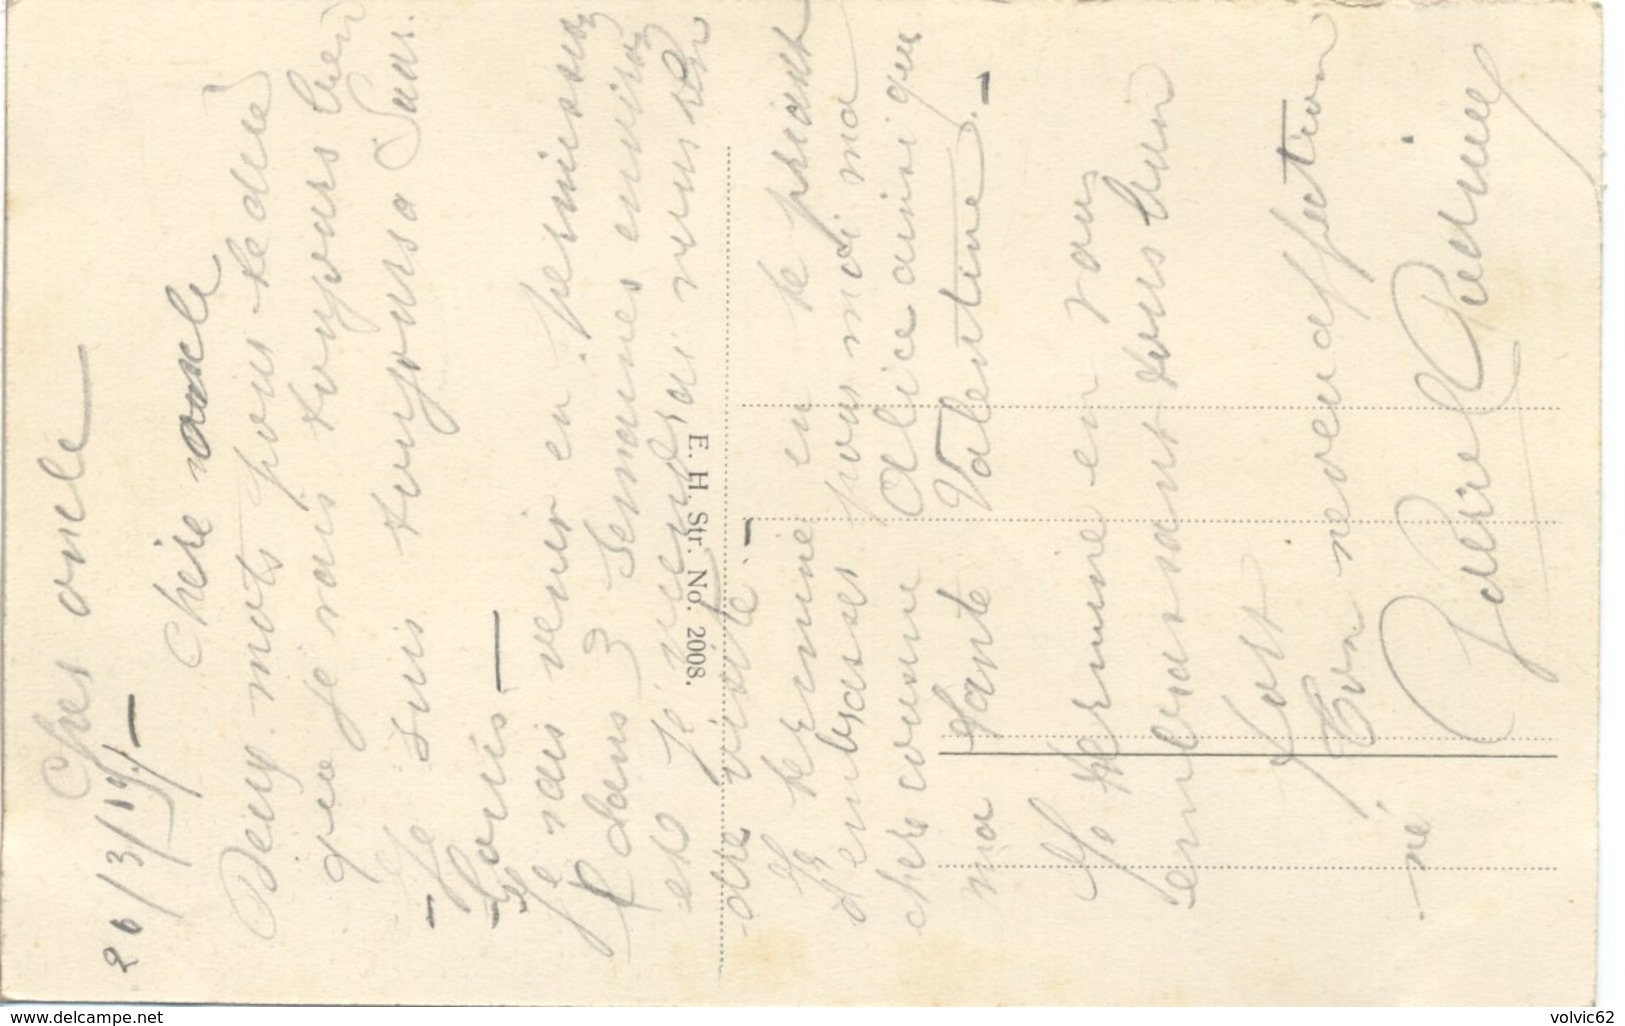 Cher oncle
26/3/19
Chère tante
Deux mots pour te dire
que je vais toujours bien
Je suis toujours a
Je vais venir en permission
dans 3 semaines environ
et je viendrai vous ren
dre visite.
Je termine en te priant
d'embrasser pour moi ma
chere cousine Alice ainsi que
ma tante Valentine.
Je termine en vous
embrassant tous bien
fort
Ton neveu affection
né.
E. H. Str. No. 2008.
www.delcampe.net
volvic62